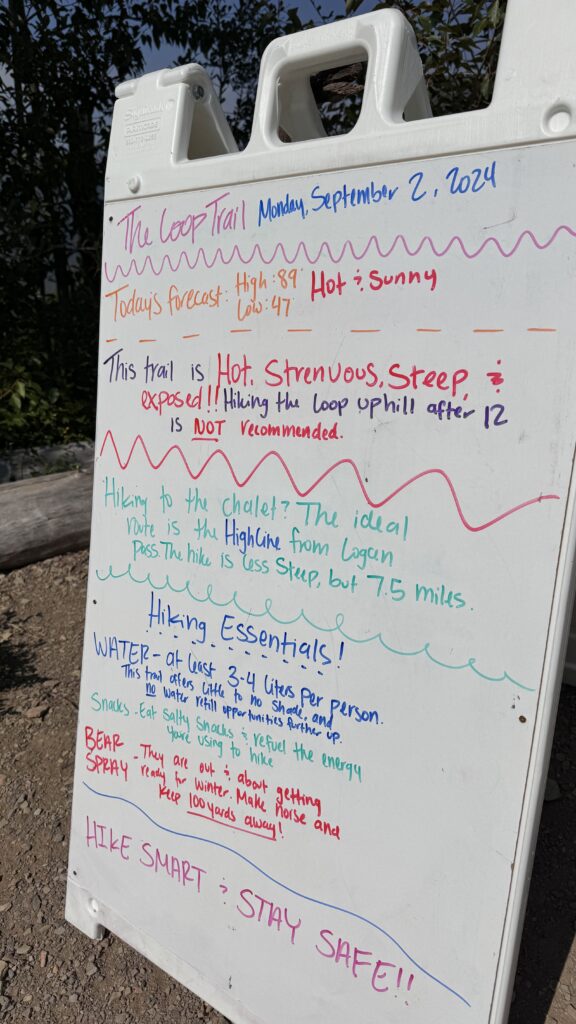 The Loop Trail Monday, September 2, 2024
Today's forecast: High: 89 Hot & Sunny
Low: 47
This trail is Hot, Strenuous, Steep, &
exposed!! Hiking the loop uphill after 12
is NOT recommended.
Hiking to the chalet? The ideal
route is the HighLine from Logan
pass. The hike is less steep, but 7.5 miles.
Hiking Essentials!
WATER - at least 3-4 liters per person.
This trail offers little to no shade, and
no water refill opportunities further up.
Snacks - Eat salty snacks & refuel the energy
you're using to hike
BEAR SPRAY - They are out & about getting
ready for winter. Make noise and
keep 100 yards away!
HIKE SMART & STAY SAFE!!